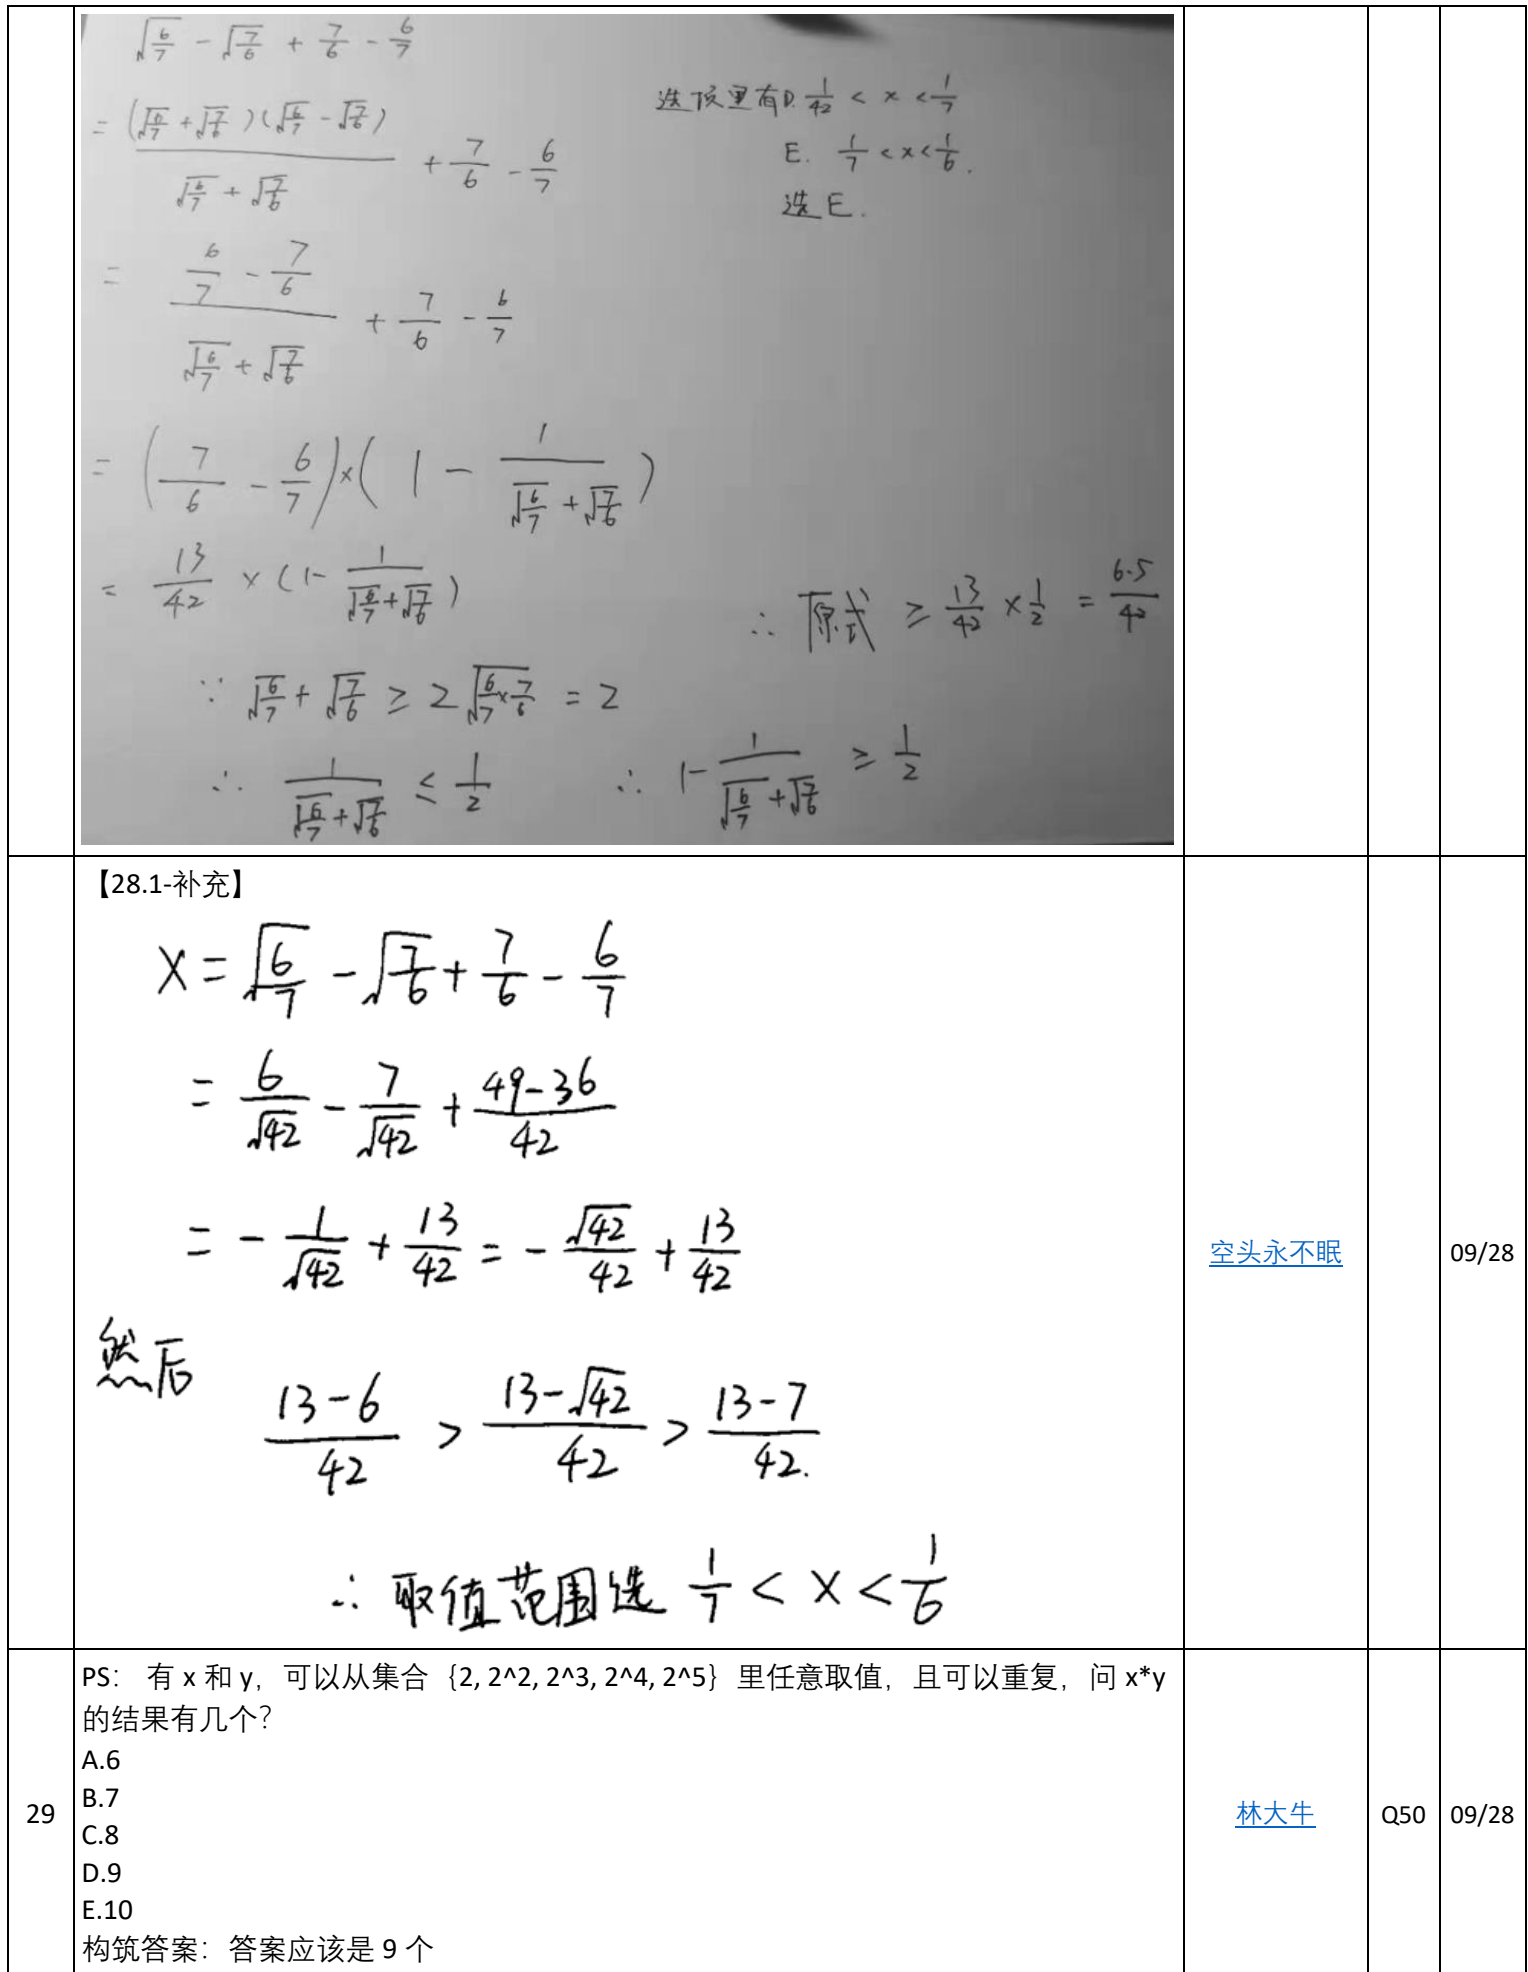 √(6/7) - √(7/6) + 7/6 - 6/7
= (√(6/7) + √(7/6))(√(6/7) - √(7/6)) / (√(6/7) + √(7/6)) + 7/6 - 6/7
= (6/7 - 7/6) / (√(6/7) + √(7/6)) + 7/6 - 6/7
= (7/6 - 6/7) × (1 - 1/(√(6/7) + √(7/6)))
= 13/42 × (1 - 1/(√(6/7) + √(7/6)))
∵ √(6/7) + √(7/6) ≥ 2√(6/7 × 7/6) = 2
∴ 1/(√(6/7) + √(7/6)) ≤ 1/2 ∴ 1 - 1/(√(6/7) + √(7/6)) ≥ 1/2
∴ 原式 ≥ 13/42 × 1/2 = 6.5/42
选项里有D. 1/42 < x < 1/7
E. 1/7 < x < 1/6.
选E.
【28.1-补充】
X = √(6/7) - √(7/6) + 7/6 - 6/7
= 6/√42 - 7/√42 + (49-36)/42
= - 1/√42 + 13/42 = - √42/42 + 13/42
然后
(13-6)/42 > (13-√42)/42 > (13-7)/42.
∴ 取值范围选 1/7 < X < 1/6
空头永不眠
09/28
29
PS: 有 x 和 y，可以从集合｛2, 2^2, 2^3, 2^4, 2^5｝里任意取值，且可以重复，问 x*y
的结果有几个？
A.6
B.7
C.8
D.9
E.10
构筑答案：答案应该是 9 个
林大牛
Q50
09/28